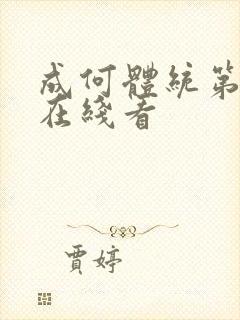 成何體統第
在綫看
賈婷